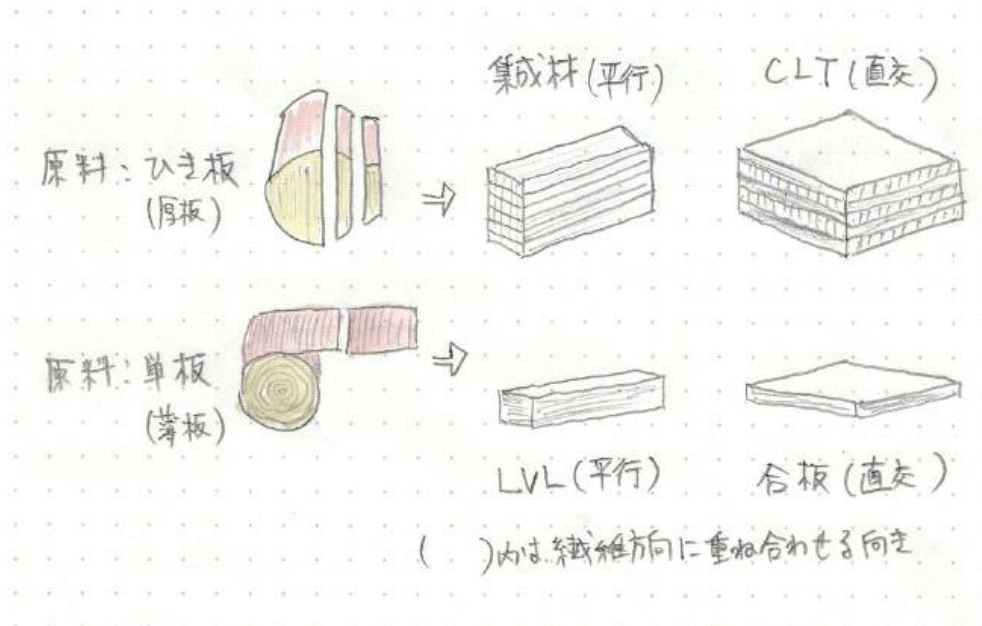 集成材(平行)
CLT(直交)
原料:ひき板
(厚板)
原料:単板
(薄板)
LVL(平行)
合板(直交)
( )内は繊維方向に重ね合わせる向き